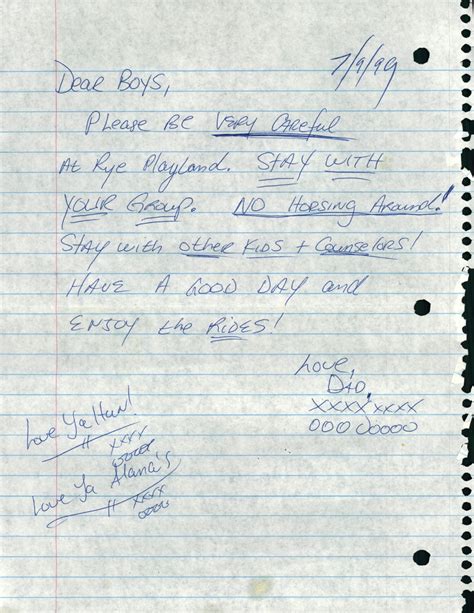 7/9/99
Dear Boys,
Please Be Very Careful
At Rye Playland. Stay with
Your Group. No Horsing Around!
Stay with other Kids + Counselors!
Have A Good Day and
Enjoy the Rides!
Love,
Dad
XXXX XXXX
000 00000
Love Ya Hun!
XXXX
0000
Love Ya Alana's
XXXX
0000